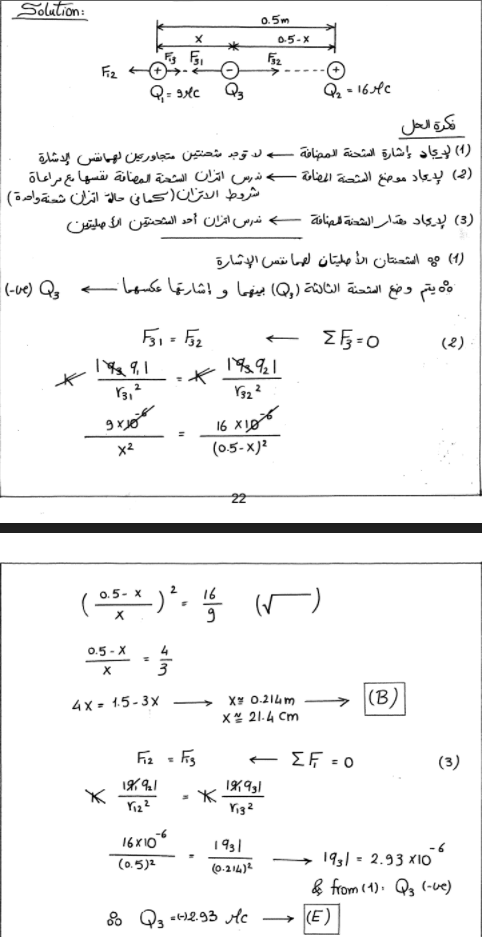 Solution:
0.5m
x
0.5-x
F12
F13
F31
F32
Q1 = 9 μc
Q3
Q2 = 16 μc
فكرة الحل
(1) لإيجاد إشارة الشحنة المضافة ← لا توجد شحنتين متجاورتين لهما نفس الإشارة
(2) لإيجاد موضع الشحنة المضافة ← ندرس اتزان الشحنة المضافة نفسها مع مراعاة
شروط الاتزان (كما في حالة اتزان شحنة واحدة)
(3) لإيجاد مقدار الشحنة المضافة ← ندرس اتزان أحد الشحنتين الأصليتين
(1) ∵ الشحنتان الأصليتان لهما نفس الإشارة
∴ يتم وضع الشحنة الثالثة (Q3) بينهما و إشارتها عكسهما ← Q3 (-ve)
(2) ΣF3 = 0 ← F31 = F32
K |q3 q1| / r31² = K |q3 q2| / r32²
9 x 10⁻⁶ / x² = 16 x 10⁻⁶ / (0.5-x)²
22
((0.5 - x) / x)² = 16/9 (√ )
(0.5 - x) / x = 4/3
4x = 1.5 - 3x → x ≅ 0.214m → (B)
x ≅ 21.4 cm
(3) ΣF1 = 0 ← F12 = F13
K |q1 q2| / r12² = K |q1 q3| / r13²
16x10⁻⁶ / (0.5)² = |q3| / (0.214)² → |q3| = 2.93 x10⁻⁶
& from (1): Q3 (-ve)
∴ Q3 = (-)2.93 μc → (E)